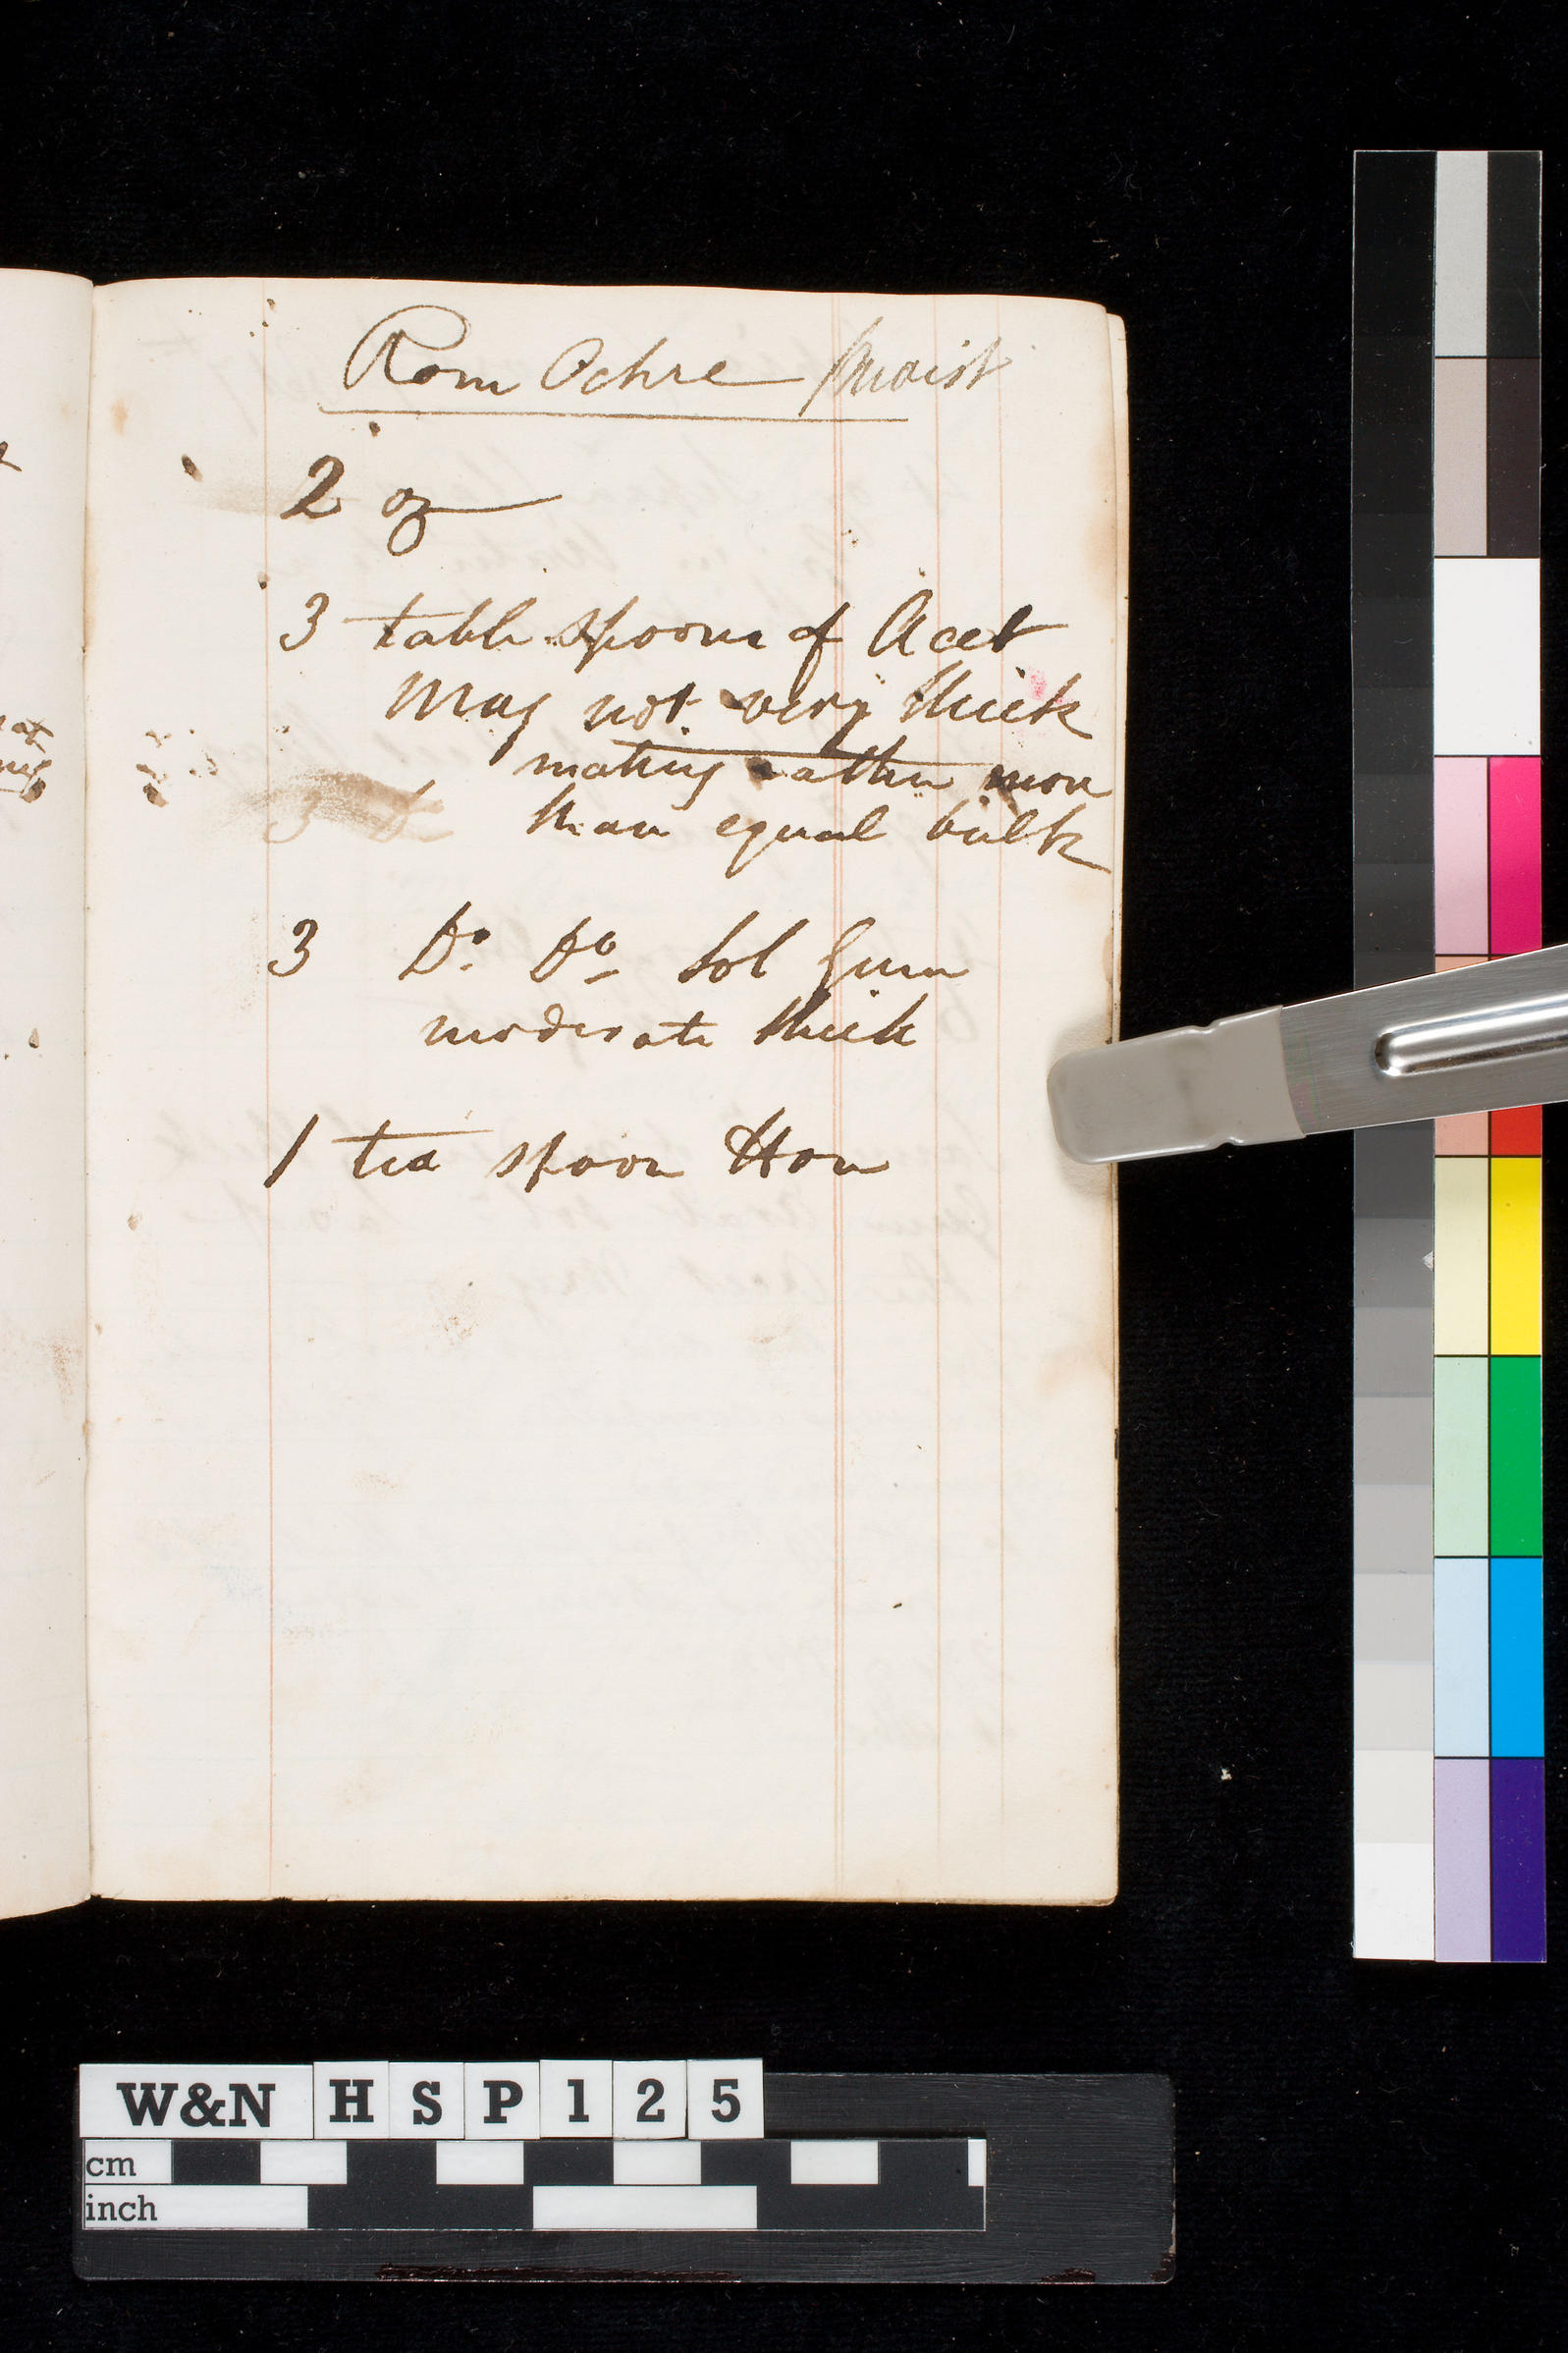 Rom Ochre / Moist
2 oz
3 table spoons of Acet
Mag not very thick
making rather more
3 Do than equal bulk
3 Do. Do Sol Gum
moderate thick
1 tea spoon Hon
W&N HSP125
cm
inch